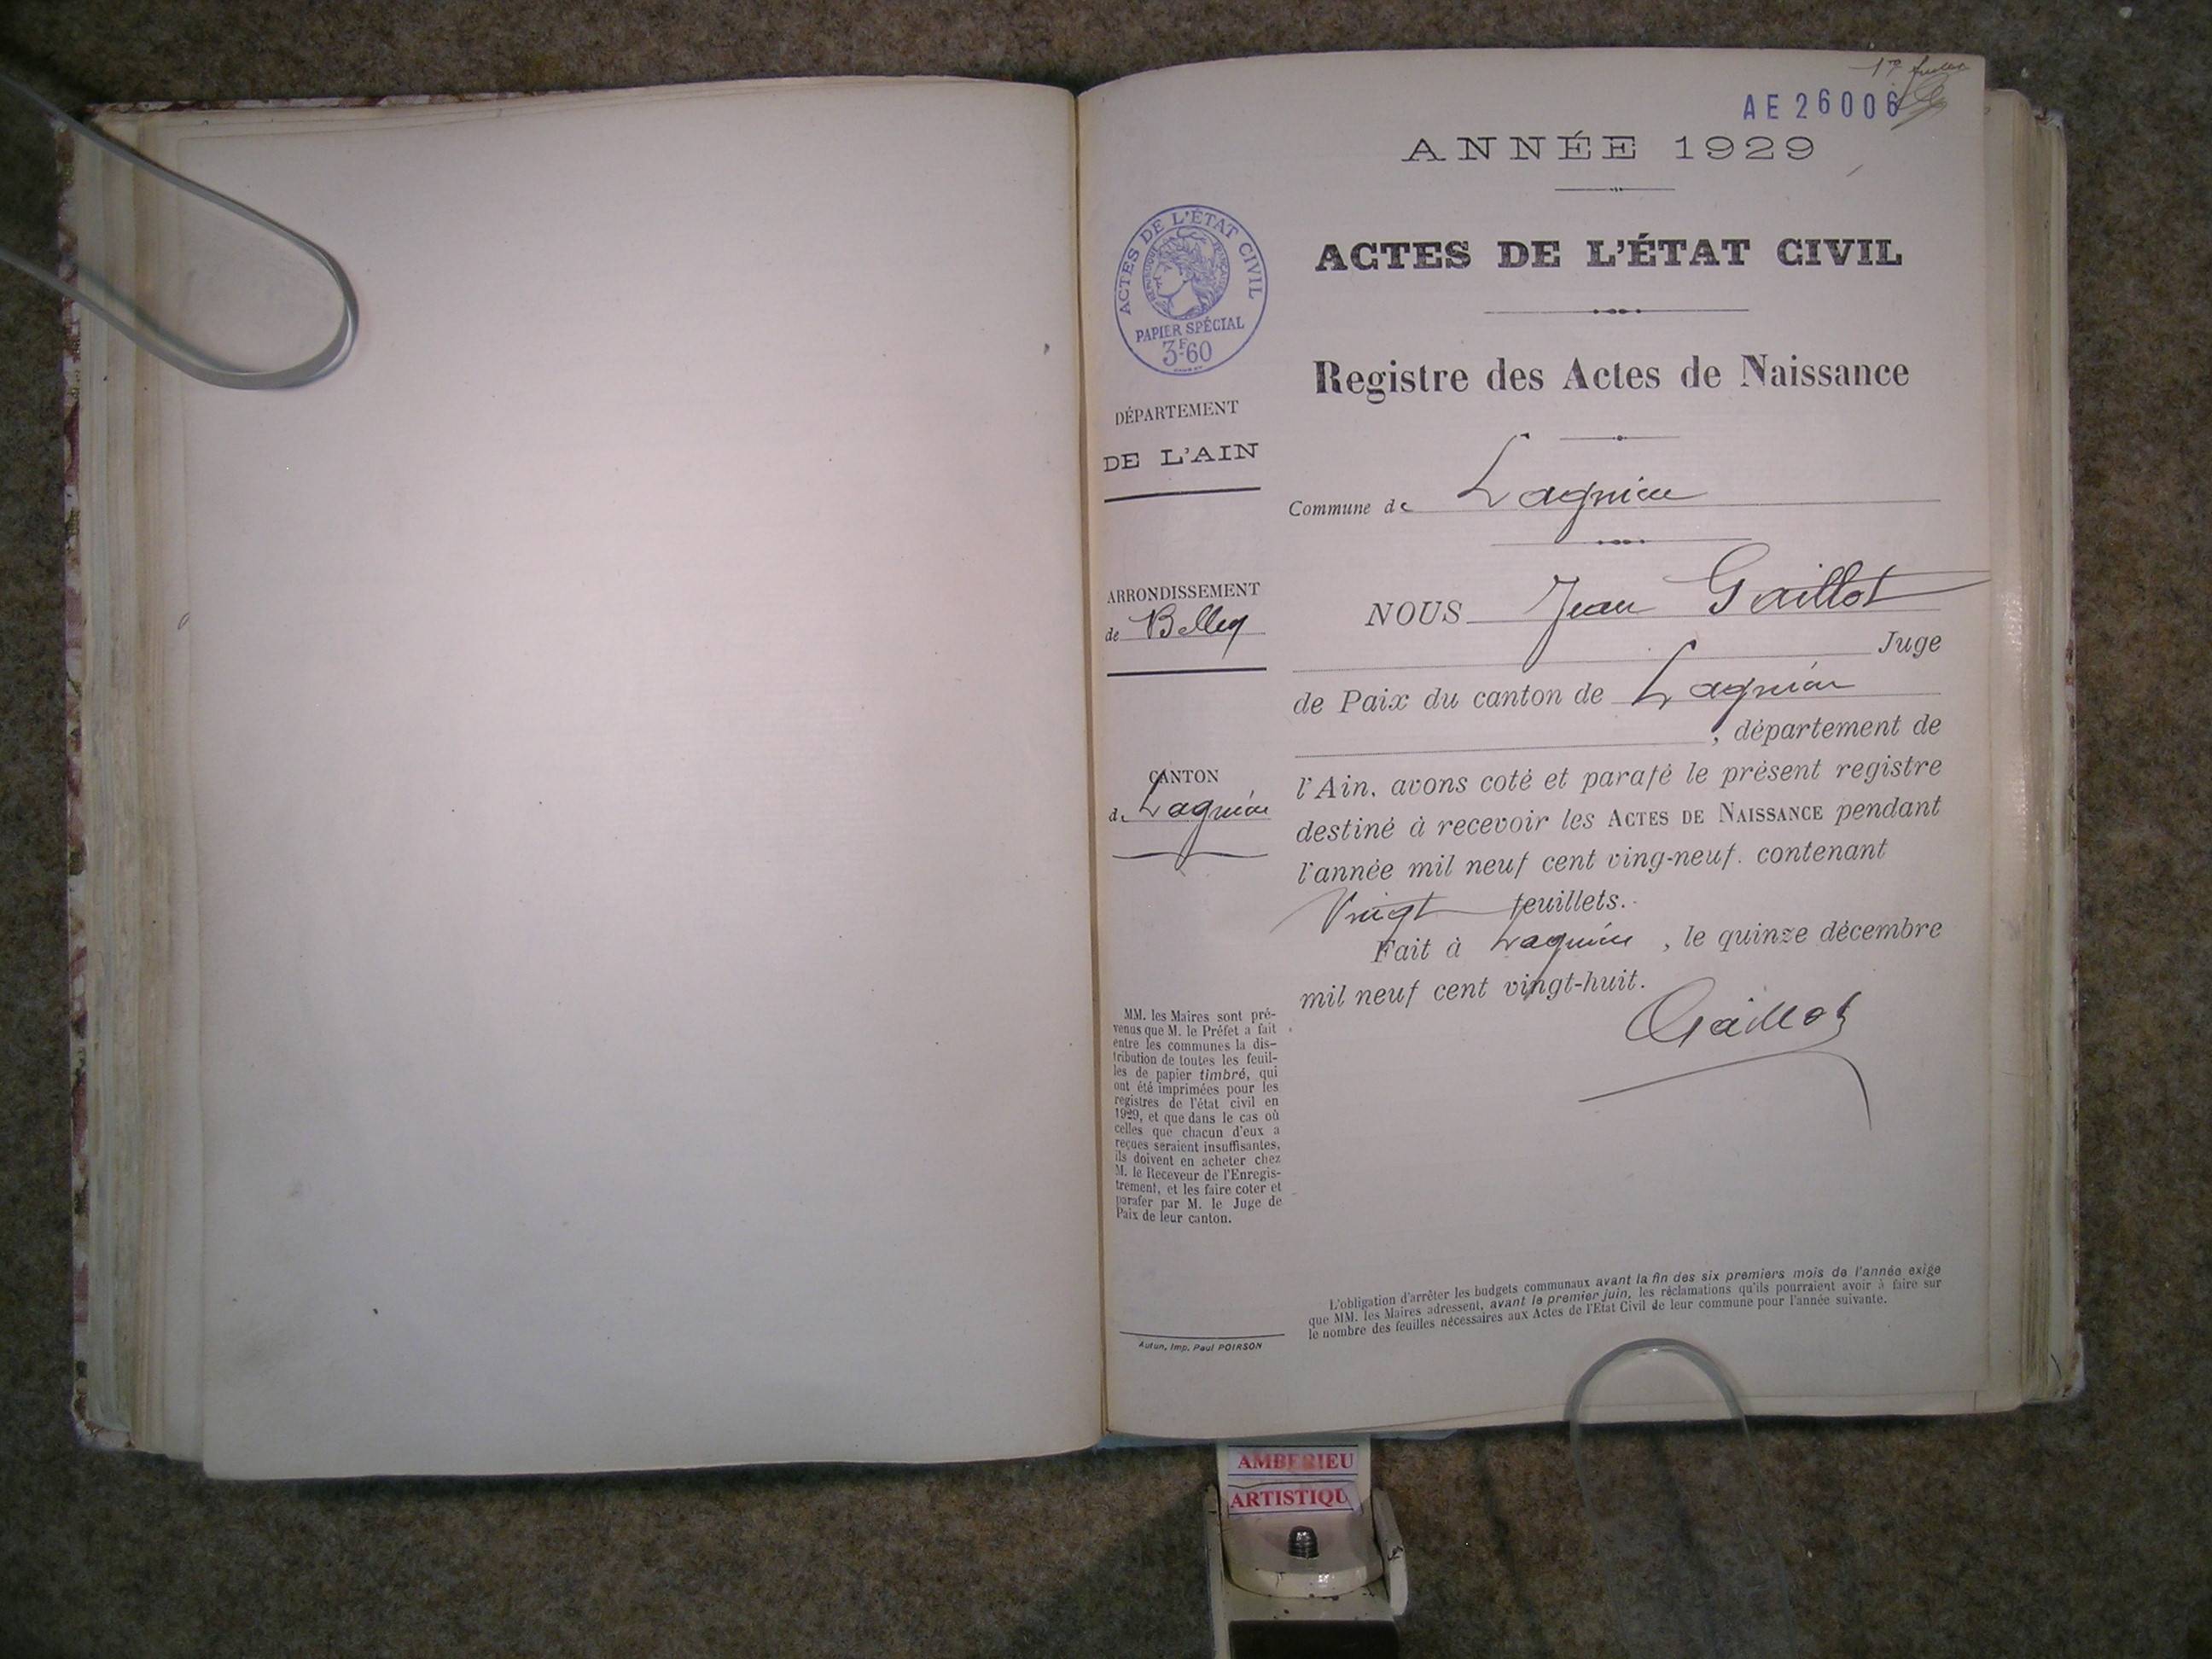 1er feuillet
AE 26006
ANNÉE 1929
ACTES DE L'ÉTAT CIVIL
RÉPUBLIQUE FRANÇAISE
PAPIER SPÉCIAL
3F60
ACTES DE L'ÉTAT CIVIL
Registre des Actes de Naissance
DÉPARTEMENT
DE L'AIN
Commune de Lagnieu
ARRONDISSEMENT
de Belley
CANTON
de Lagnieu
NOUS Jean Gaillot
Juge
de Paix du canton de Lagnieu
, département de
l'Ain, avons coté et parafé le présent registre
destiné à recevoir les ACTES DE NAISSANCE pendant
l'année mil neuf cent ving-neuf. contenant
Vingt feuillets.
Fait à Lagnieu, le quinze décembre
mil neuf cent vingt-huit.
Gaillot
MM. les Maires sont pré-
venus que M. le Préfet a fait
entre les communes la dis-
tribution de toutes les feuil-
les de papier timbré, qui
ont été imprimées pour les
registres de l'état civil en
1929, et que dans le cas où
celles que chacun d'eux a
reçues seraient insuffisantes,
ils doivent en acheter chez
M. le Receveur de l'Enregis-
trement, et les faire coter et
parafer par M. le Juge de
Paix de leur canton.
L'obligation d'arrêter les budgets communaux avant la fin des six premiers mois de l'année exige
que MM. les Maires adressent, avant le premier juin, les réclamations qu'ils pourraient avoir à faire sur
le nombre des feuilles nécessaires aux Actes de l'Etat Civil de leur commune pour l'année suivante.
Autun, Imp. Paul POIRSON
AMBERIEU
ARTISTIQU